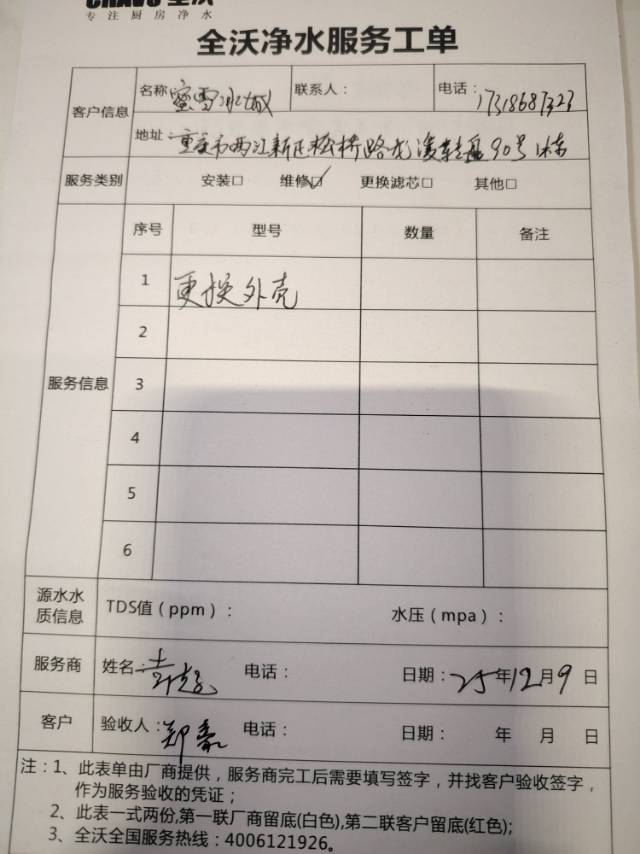 专注厨房净水
全沃净水服务工单
客户信息
名称 蜜雪冰城
联系人：
电话：17318687323
地址：重庆市两江新区松桥路龙湊转盘90号
服务类别 安装□ 维修☑ 更换滤芯□ 其他□
服务信息
序号 型号 数量 备注
1 更换外壳
2
3
4
5
6
源水水
质信息
TDS值（ppm）： 水压（mpa）：
服务商 姓名： 电话： 日期：25年12月9日
客户 验收人：郑 电话： 日期： 年 月 日
注：1、此表单由厂商提供，服务商完工后需要填写签字，并找客户验收签字，
作为服务验收的凭证；
2、此表一式两份,第一联厂商留底(白色),第二联客户留底(红色);
3、全沃全国服务热线：4006121926。